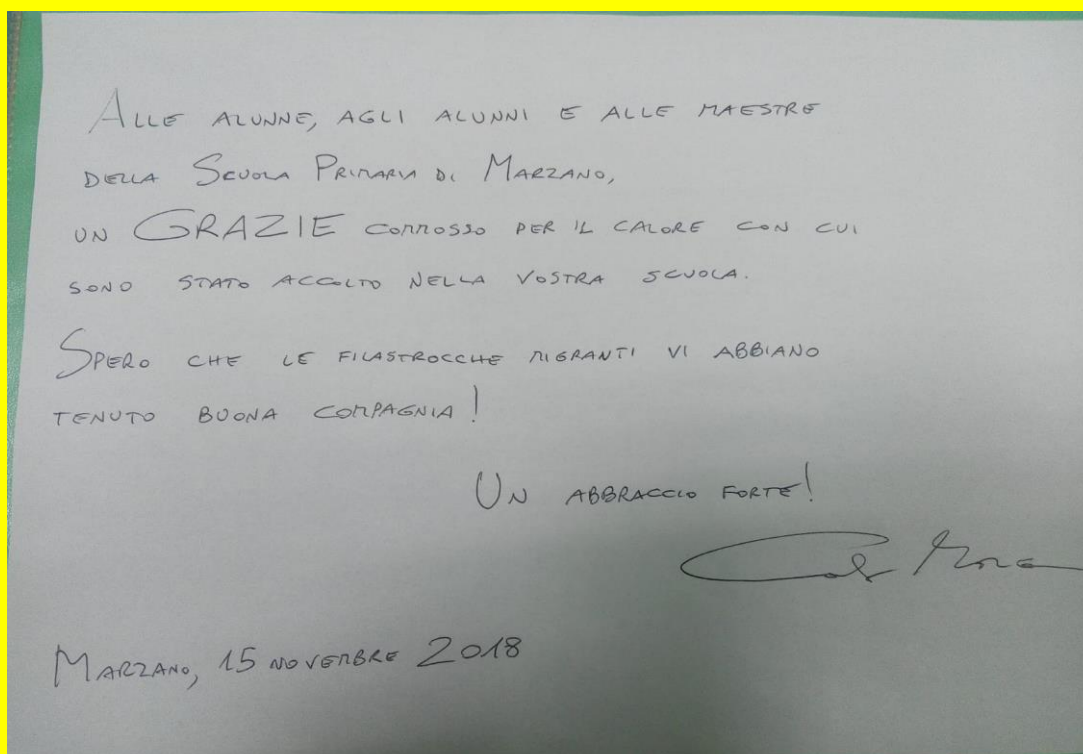 Alle alunne, agli alunni e alle maestre
della Scuola Primaria di Marzano,
un GRAZIE commosso per il calore con cui
sono stato accolto nella vostra scuola.
Spero che le filastrocche migranti vi abbiano
tenuto buona compagnia!
Un abbraccio forte!
Marzano, 15 novembre 2018